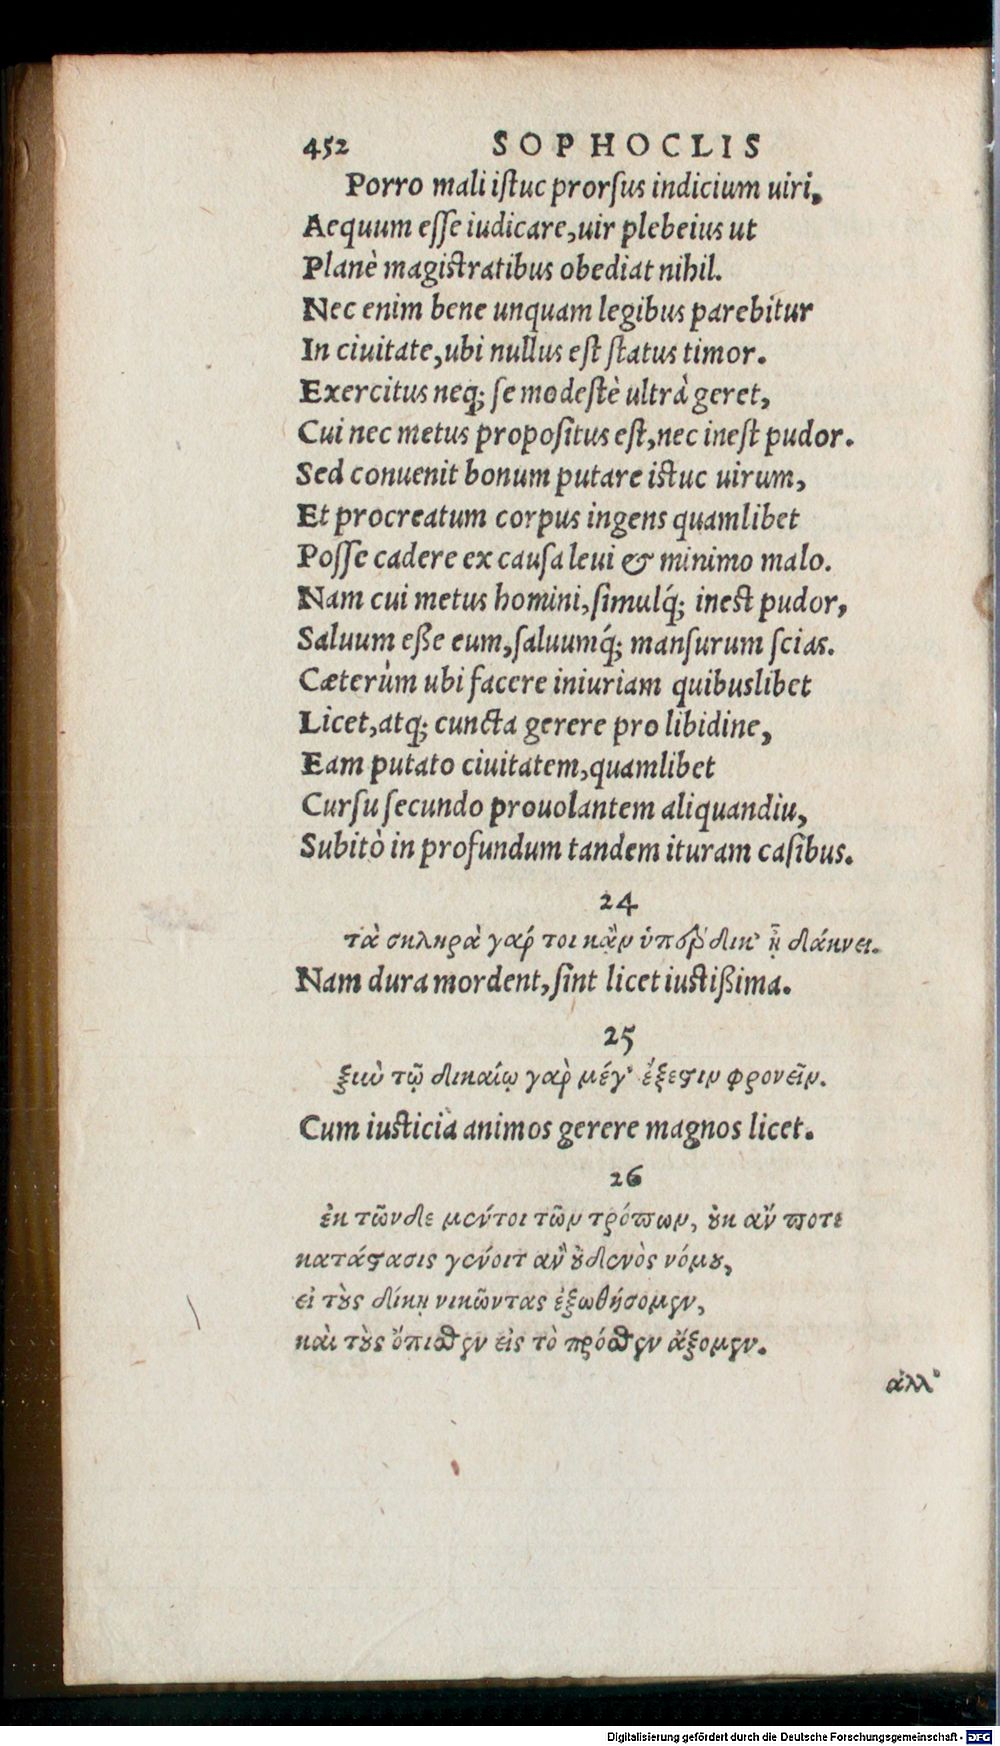 452 SOPHOCLIS
Porro mali iſtuc prorſus indicium uiri,
Aequum eſſe iudicare, uir plebeius ut
Planè magiſtratibus obediat nihil.
Nec enim bene unquam legibus parebitur
In ciuitate, ubi nullus eſt ſtatus timor.
Exercitus neq; ſe modeſtè ultrà geret,
Cui nec metus propoſitus eſt, nec ineſt pudor.
Sed conuenit bonum putare iſtuc uirum,
Et procreatum corpus ingens quamlibet
Poſſe cadere ex cauſa leui & minimo malo.
Nam cui metus homini, ſimulq́; ineſt pudor,
Saluum eße eum, ſaluumq́; manſurum ſcias.
Cæterùm ubi facere iniuriam quibuslibet
Licet, atq; cuncta gerere pro libidine,
Eam putato ciuitatem, quamlibet
Curſu ſecundo prouolantem aliquandiu,
Subitò in profundum tandem ituram caſibus.
24
τὰ σκληρὰ γάρ τοι κἂν ὑπέρδικ' ᾖ δάκνει.
Nam dura mordent, ſint licet iuſtißima.
25
ξὺν τῷ δικαίῳ γὰρ μέγ' ἔξεστιν φρονεῖν.
Cum iuſticia animos gerere magnos licet.
26
ἐκ τῶνδε μέντοι τῶν τρόπων, ȣκ ἄν ποτε
κατάστασις γένοιτ ἂν ȣδενὸς νόμȣ,
εἰ τȣ̀ς δίκῃ νικῶντας ἐξωθήσομεν,
καὶ τȣ̀ς ὄπισθεν εἰς τὸ πρόσθεν ἄξομεν.
ἀλλ'
Digitalisierung gefördert durch die Deutsche Forschungsgemeinschaft - DFG